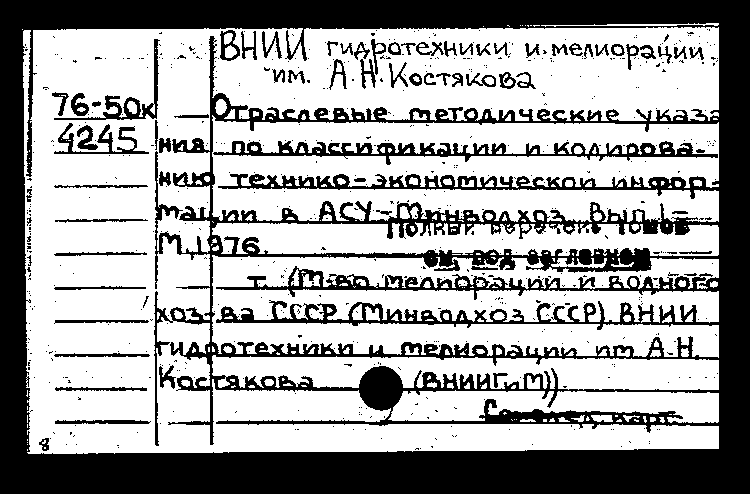 ВНИИ гидротехники и мелиорации
им. А.Н. Костякова
76-50к
4245
Отраслевые методические указа
ния по классификации и кодирова-
нию технико-экономической инфор-
мации в АСУ-Минводхоз. Вып. 1-
Полный перечень томов
М., 1976.
см. под заглавием
т. (М-во мелиорации и водного
хоз-ва СССР (Минводхоз СССР). ВНИИ
гидротехники и мелиорации им А.Н.
Костякова (ВНИИГиМ)).
См. след. карт.
8